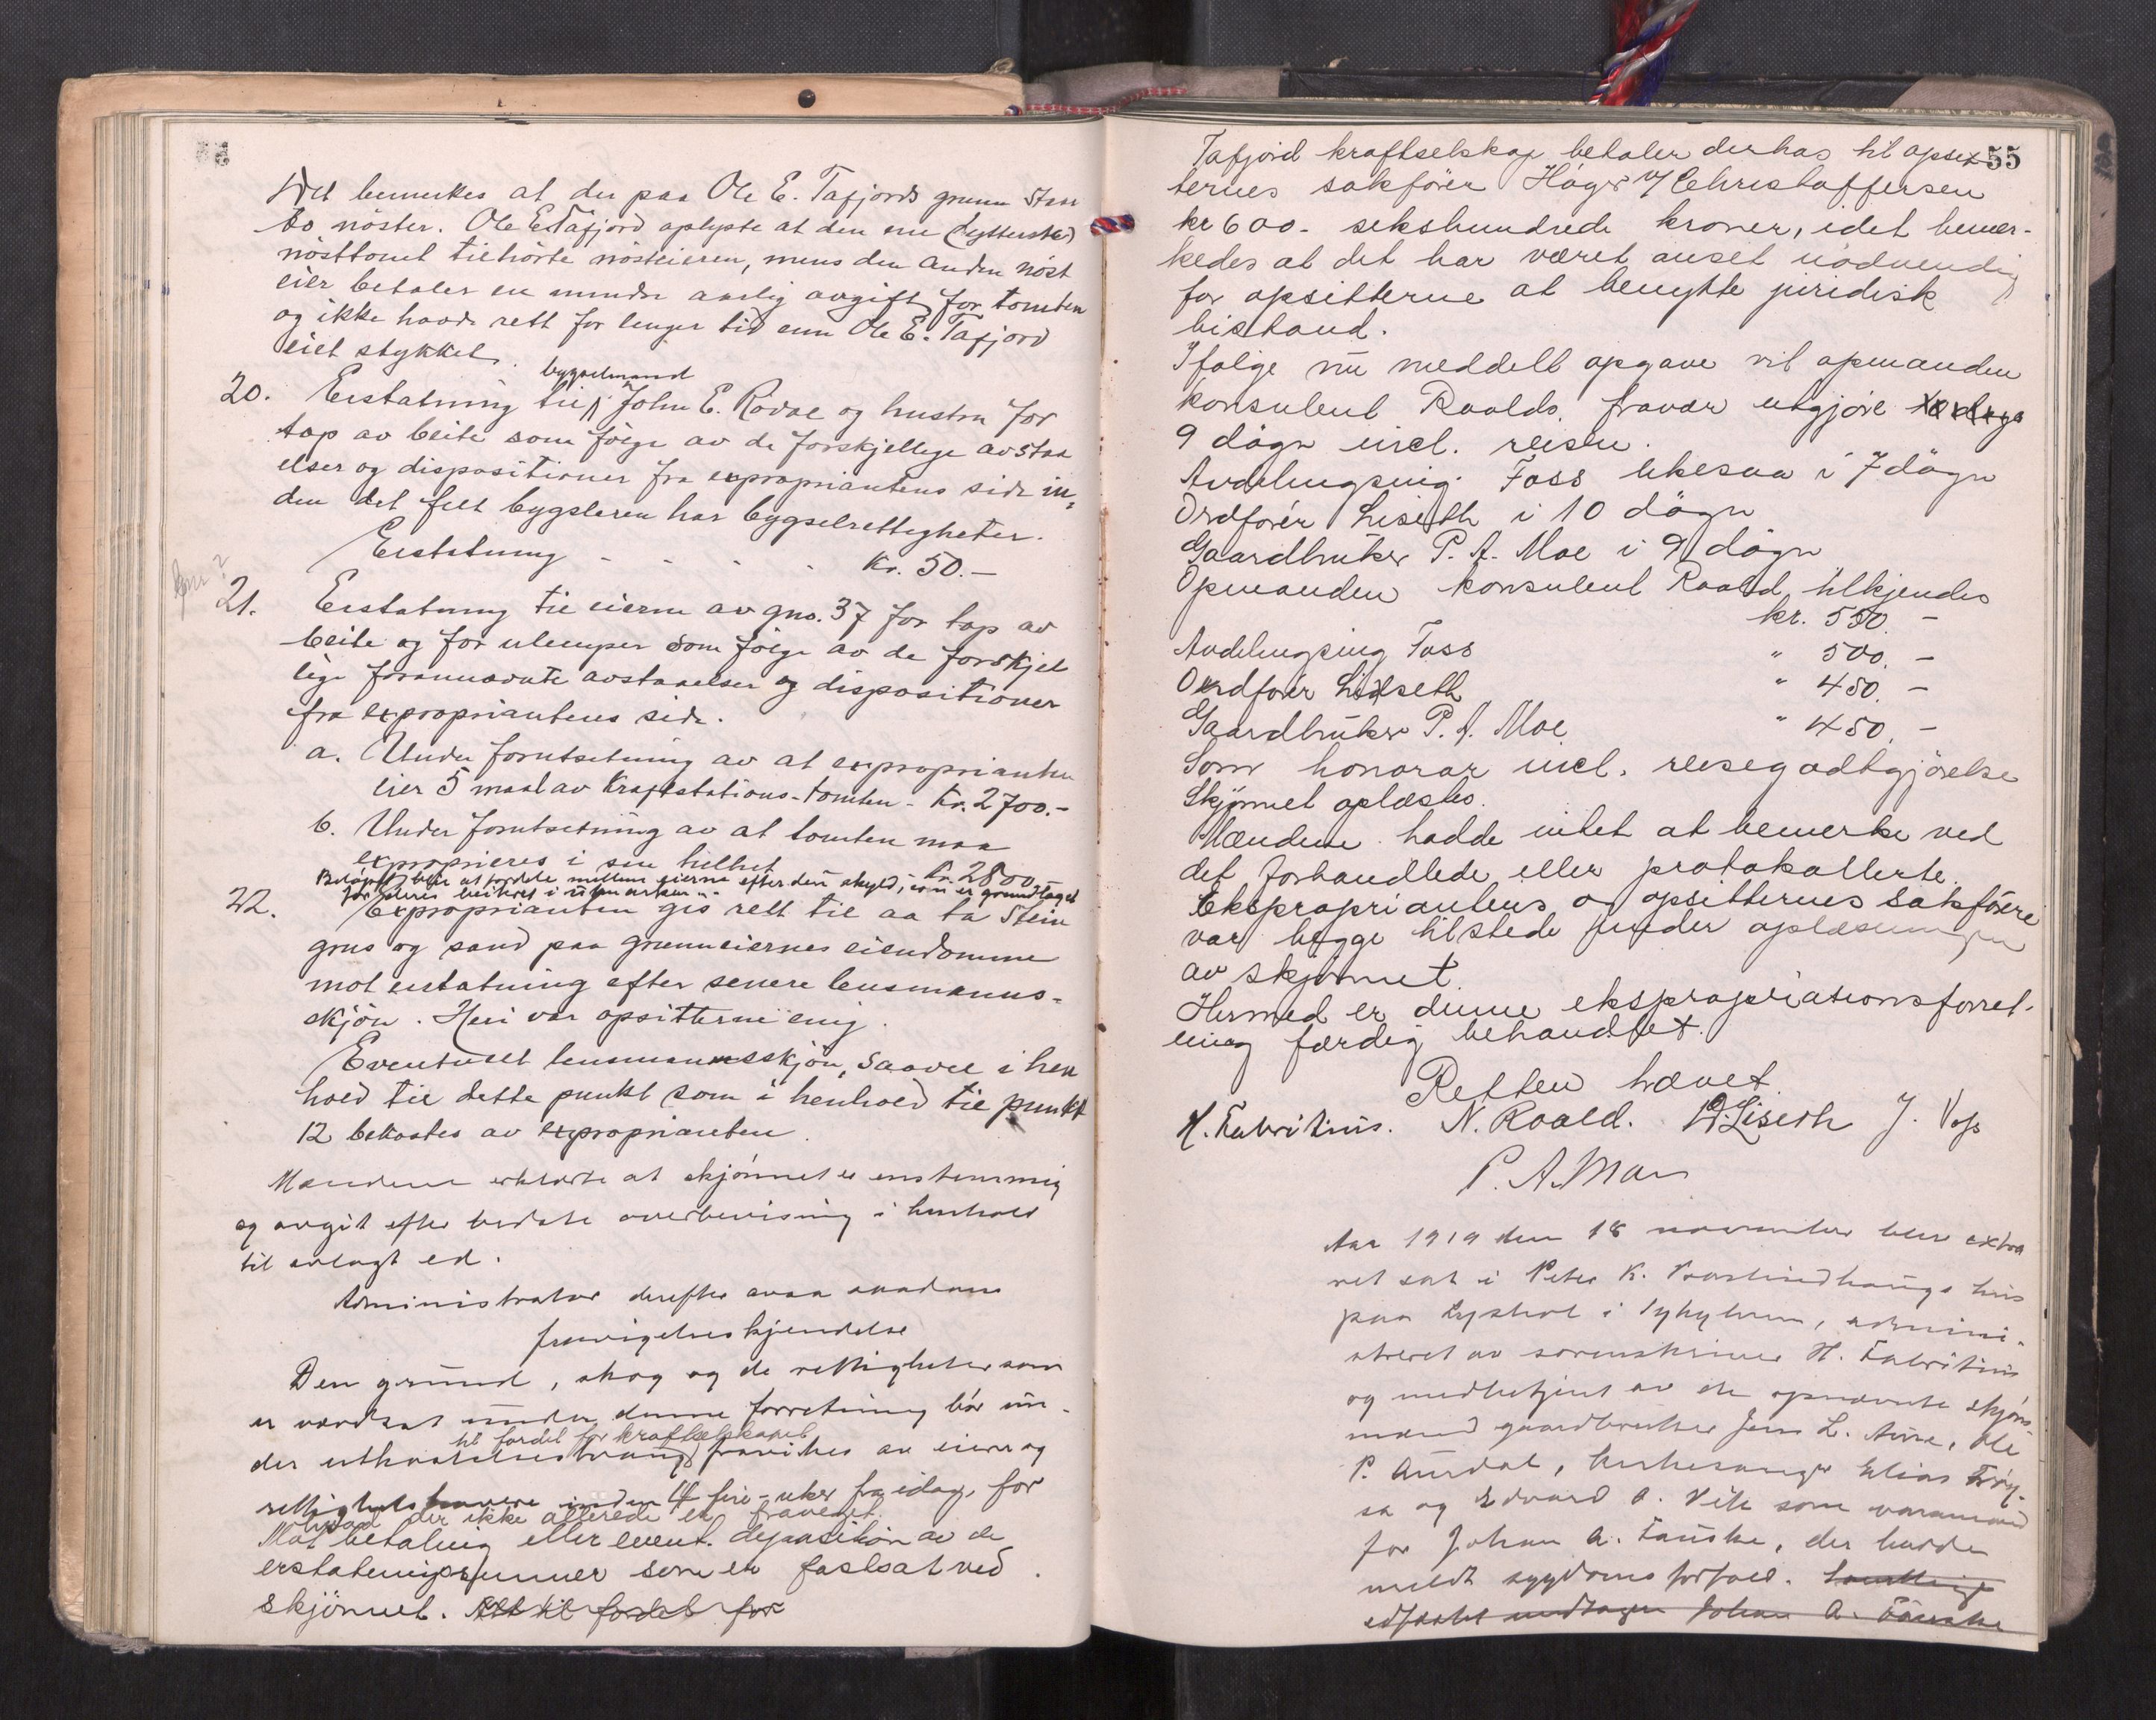 Det bemerkes at der paa Ole E. Tafjords grunn staar
to nöster. Ole E. Tafjord oplyste at den ene (ytterste)
nösttomt tilhörte nösteieren, mens den anden nöst
eier betaler en mindre aarlig avgift for tomten
og ikke havde rett for lenger tid enn Ole E. Tafjord
eiet stykket.
bygselmand
20. Erstatning til John E. Rödal og hustru for
tap av beite som fölge av de forskjellige avstaa
elser og dispositioner fra expropriantens side in-
den det felt bygsleren har bygselrettigheter.
Erstatning - - - - Kr. 50.-
21. Erstatning til eierne av gno. 37 for tap av
beite og for ulemper som fölge av de forskjel
lige forannævnte avstaaelser og dispositioner
fra expropriantens side.
a. Under forutsetning av at exproprianten
eier 5 maal av Kraftstations-tomten - Kr. 2700.-
b. Under forutsetning av at tomten maa
exproprieres i sin helhet Kr. 2800
Belöpet blir at fordele mellem eierne efter den skyld, som er grundlaget
for deres beiteret i utmarken.
22. Exproprianten gis rett til aa ta stein
grus og sand paa grunneiernes eiendomme
mot erstatning efter senere lensmanns-
skjön. Heri var opsitterne enig.
Eventuelt lensmannsskjön, saavel i hen
hold til dette punkt som i henhold til punkt
12 bekostes av exproprianten.
Mændene erklærte at skjönnet er enstemmig
og avgit efter bedste overbevisning i henhold
til avlagt ed.
Administrator derefter avsa saadan
fravigelseskjendelse
Den grund, skog og de rettigheter som
er verdsat under denne forretning bör un-
til fordel for kraftselskapet
der utkastelsestvang fravikes av eiere og
rettighetshavere inden 4 fire - uker fra idag, for
hvad der ikke allerede er fraveket.
Mot betaling eller event. deposition av de
erstatningssummer som er fastsat ved
skjönnet. Alt til fordel for
55
Tafjord kraftselskap betaler derhos til opsit-
ternes sakförer Hägr. Christoffersen
kr 600- sekshundrede kroner, idet bemer-
kedes at det har været anset nödvendig
for opsitterne at benytte juridisk
bistand.
Ifölge nu meddelt opgave vil opmanden
konsulent Roalds fravær utgjöre
9 dögn incl. reisen.
Avdelingsing. Foss likesaa i 7 dögn
Ordförer Liseth i 10 dögn
Gaardbruker P. A. Moe i 9 dögn
Opmanden konsulent Roald tilkjendes
kr. 550. -
Avdelingsing Foss " 500. -
Ordförer Liseth " 450. -
Gaardbruker P. A. Moe " 450. -
Som honorar incl. reisegodtgjörelse
Skjönnet oplæstes.
Mændene hadde intet at bemerke ved
det forhandlede eller protokollerte.
Ekspropriantens og opsitternes sakförere
var begge tilstede under oplæsningen
av skjönnet.
Hermed er denne ekspropriationsforret-
ning færdig behandlet.
Retten hævet
H. Fabritius. N. Roald. O. Liseth J. Foss
P. A. Moe
Aar 1919 den 18 november blev extra
ret sat i Peter K. hus
paa i Sykylven, admini-
streret av sorenskriver H. Fabritius
og medbetjent av de opnævnte skjöns
mænd gaardbruker Jens L. Aure, Ole
P. Aurdal, kirkesanger Elias
sa og Edvard A. Vik som varamand
for Johan A. Tauske, der hadde
meldt sygdoms forfald. Samtlige
edfæstet undtagen Johan A. Tauske